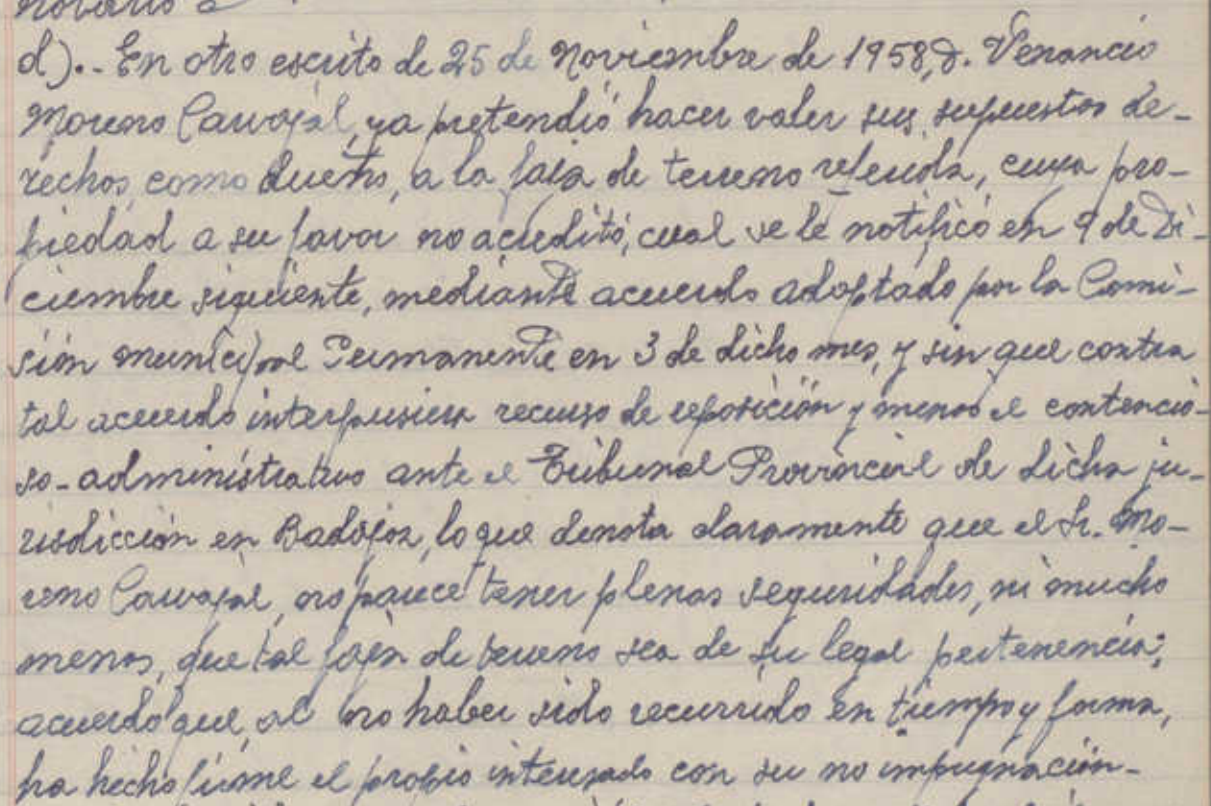 d).- En otro escrito de 25 de Noviembre de 1958, D. Venancio
Moreno Carvajal, ya pretendió hacer valer sus supuestos de-
rechos, como dueño, a la faja de terreno referida, cuya pro-
piedad a su favor no acreditó, cual se le notificó en 9 de Di-
ciembre siguiente, mediante acuerdo adoptado por la Comi-
sión municipal Permanente en 3 de dicho mes, y sin que contra
tal acuerdo interpusiera recurso de reposición y menos el contencio-
so-administrativo ante el Tribunal Provincial de dicha ju-
risdicción en Badajoz, lo que denota claramente que el Sr. Mo-
reno Carvajal, no parece tener plenas seguridades, ni mucho
menos, que tal faja de terreno sea de su legal pertenencia;
acuerdo que, al no haber sido recurrido en tiempo y forma,
ha hecho firme el propio interesado con su no impugnación.-